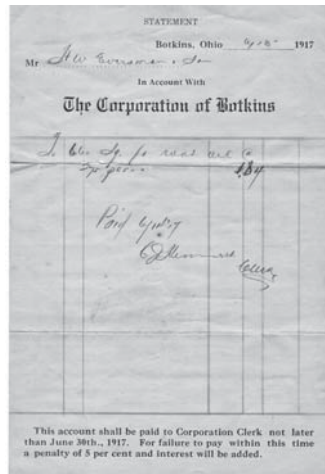 STATEMENT
Botkins, Ohio 1917
Mr H W Eversman & Son
In Account With
The Corporation of Botkins
To 66 Sq. ft road oil @
1.84
Paid
Clerk
This account shall be paid to Corporation Clerk not later
than June 30th., 1917. For failure to pay within this time
a penalty of 5 per cent and interest will be added.